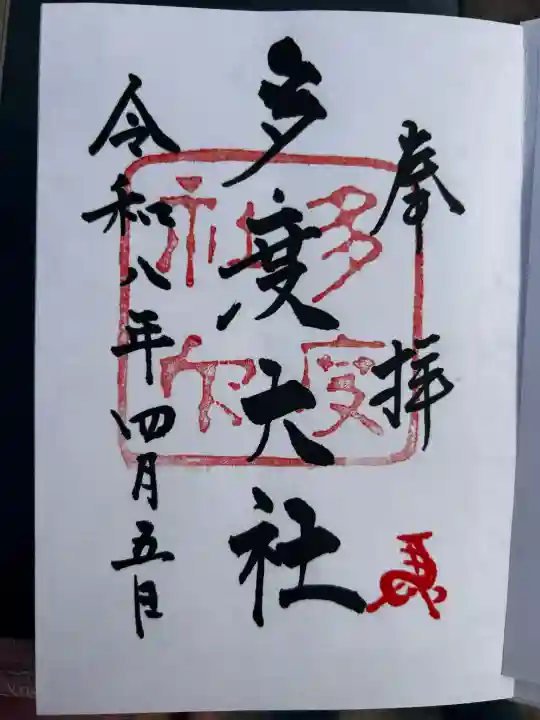 奉拝
多度大社
令和八年四月五日
多度